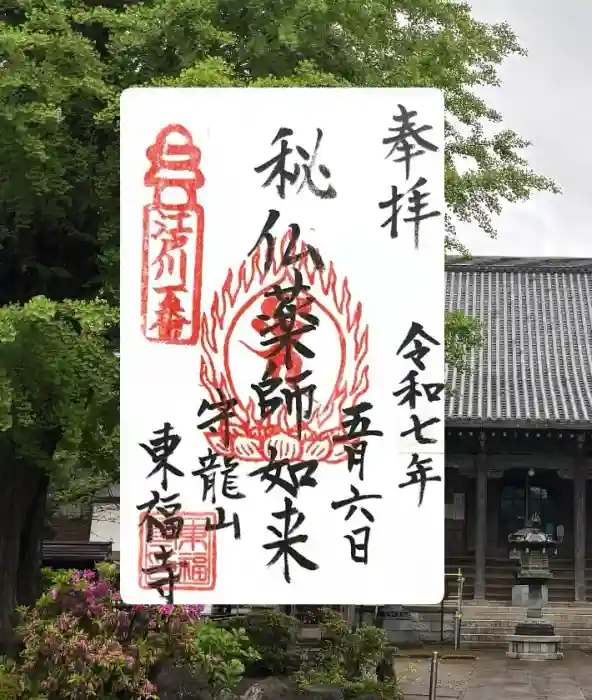 奉拝
令和七年
五月六日
秘仏薬師如来
宝龍山
東福寺
江戸川
一番
東福